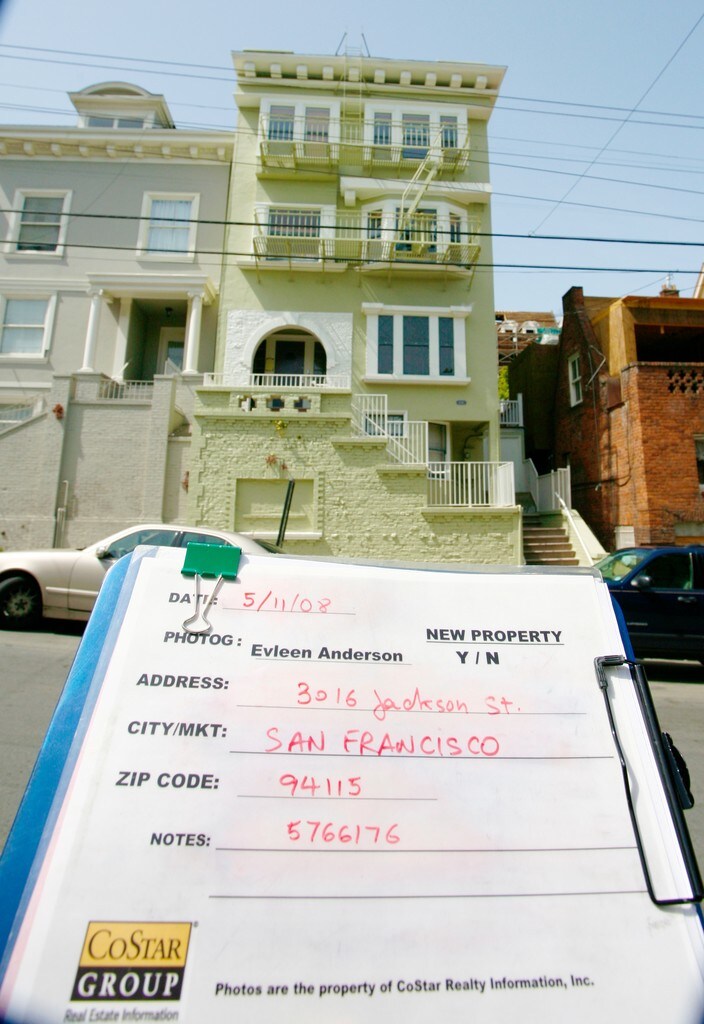 DATE: 5/11/08
PHOTOG: Evleen Anderson
NEW PROPERTY
Y / N
ADDRESS: 3016 Jackson St.
CITY/MKT: SAN FRANCISCO
ZIP CODE: 94115
NOTES: 5766176
COSTAR
GROUP
Real Estate Information
Photos are the property of CoStar Realty Information, Inc.